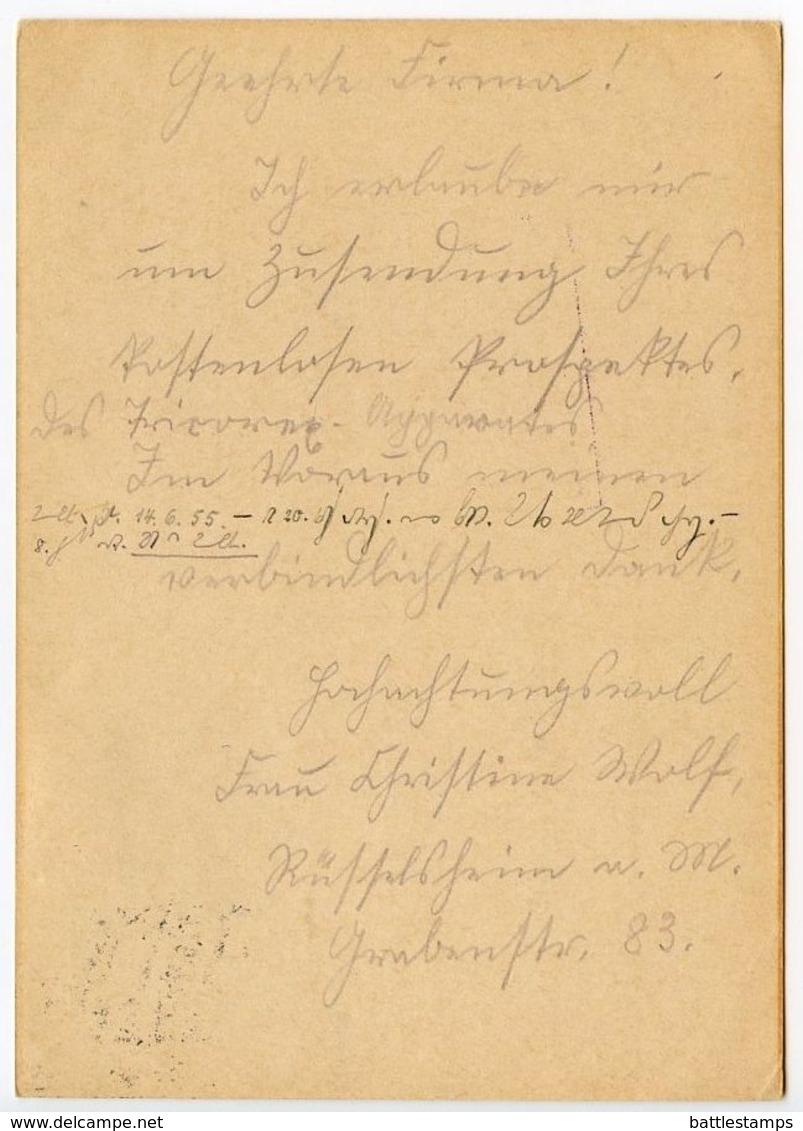 Geehrte Firma!
Ich erlaube mir
um Zusendung Ihres
kostenlosen Prospektes,
des Tricorex-Apparates
Im Voraus meinen
14.6.55. – 20.
8.
verbindlichsten Dank,
Hochachtungsvoll
Frau Christine Wolf,
Rüsselsheim a. M.
Grabenstr. 83.
delcampe.net
battlestamps